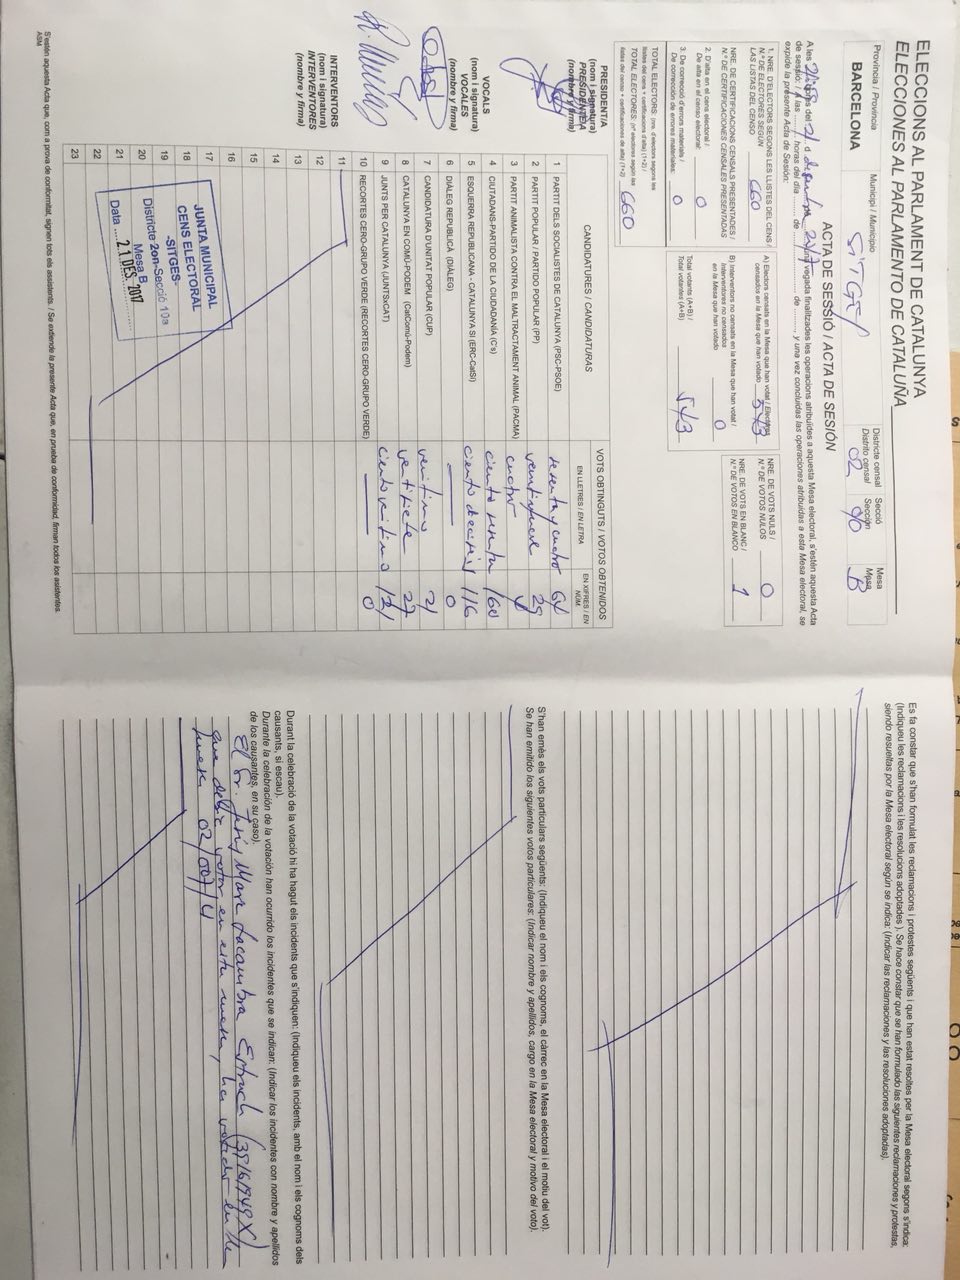 ELECCIONS AL PARLAMENT DE CATALUNYA
ELECCIONES AL PARLAMENTO DE CATALUÑA
Província / Provincia
BARCELONA
Municipi / Municipio
SITGES
Districte censal
Distrito censal
02
Secció
Sección
Mesa
Mesa
B
ACTA DE SESSIÓ / ACTA DE SESIÓN
de sessió: / A las horas del día de de , y una vez concluidas las operaciones atribuidas a esta Mesa electoral, se
expide la presente Acta de Sesión:
1. NRE. D'ELECTORS SEGONS LES LLISTES DEL CENS /
N.º DE ELECTORES SEGÚN
LAS LISTAS DEL CENSO
660
NRE. DE CERTIFICACIONS CENSALS PRESENTADES /
N.º DE CERTIFICACIONES CENSALES PRESENTADAS
2. D'alta en el cens electoral /
De alta en el censo electoral:
0
3. De correcció d'errors materials /
De corrección de errores materiales:
0
TOTAL ELECTORES: (nº electores según las
listas del censo + certificaciones de alta) (1+2)
660
A) Electors censats en la Mesa que han votat / Electores
censados en la Mesa que han votado
543
B) Interventors no censats en la Mesa que han votat /
Interventores no censados
en la Mesa que han votado
0
Total votants (A+B) /
Total votantes (A+B)
543
NRE. DE VOTS NULS /
N.º DE VOTOS NULOS
0
NRE. DE VOTS EN BLANC /
N.º DE VOTOS EN BLANCO
1
CANDIDATURES / CANDIDATURAS
VOTS OBTINGUTS / VOTOS OBTENIDOS
EN LLETRES / EN LETRA
EN XIFRES / EN NÚM.
1 PARTIT DELS SOCIALISTES DE CATALUNYA (PSC-PSOE) sesenta y cuatro 64
2 PARTIT POPULAR / PARTIDO POPULAR (PP) veintinueve 29
3 PARTIT ANIMALISTA CONTRA EL MALTRACTAMENT ANIMAL (PACMA) cuatro 4
4 CIUTADANS-PARTIDO DE LA CIUDADANÍA (C's) ciento sesenta 160
5 ESQUERRA REPUBLICANA - CATALUNYA SÍ (ERC-CatSí) ciento dieciseis 116
6 DIÀLEG REPUBLICÀ (DIÀLEG) 0
7 CANDIDATURA D'UNITAT POPULAR (CUP) veintiuno 21
8 CATALUNYA EN COMÚ-PODEM (CatComú-Podem) veintisiete 27
9 JUNTS PER CATALUNYA (JUNTSxCAT) ciento veintiuno 121
10 RECORTES CERO-GRUPO VERDE (RECORTES CERO-GRUPO VERDE) 0
11
12
13
14
15
16
17
18
19
20
21
22
23
PRESIDENT/A
(nom i signatura)
PRESIDENTE/A
(nombre y firma)
VOCALS
(nom i signatura)
VOCALES
(nombre y firma)
INTERVENTORS
(nom i signatura)
INTERVENTORES
(nombre y firma)
JUNTA MUNICIPAL
CENS ELECTORAL
-SITGES-
Districte 2on-Secció 10a
Mesa B
Data 21 DES. 2017
S'estén aquesta Acta que, com a prova de conformitat, signen tots els assistents. / Se extiende la presente Acta que, en prueba de conformidad, firman todos los asistentes.
ASM
Es fa constar que s'han formulat les reclamacions i protestes següents i que han estat resoltes per la Mesa electoral segons s'indica:
(Indiqueu les reclamacions i les resolucions adoptades). Se hace constar que se han formulado las siguientes reclamaciones y protestas,
siendo resueltas por la Mesa electoral según se indica: (Indicar las reclamaciones y las resoluciones adoptadas).
S'han emès els vots particulars següents: (Indiqueu el nom i els cognoms, el càrrec en la Mesa electoral i el motiu del vot).
Se han emitido los siguientes votos particulares: (Indicar nombre y apellidos, cargo en la Mesa electoral y motivo del voto).
Durant la celebració de la votació hi ha hagut els incidents que s'indiquen: (Indiqueu els incidents, amb el nom i els cognoms dels
causants, si escau).
Durante la celebración de la votación han ocurrido los incidentes que se indican: (Indicar los incidentes con nombre y apellidos
de los causantes, en su caso).
El Sr. Jesús Mari Lacambra Estruch
que debía votar en esta mesa, ha votado en la
mesa 02/007/U